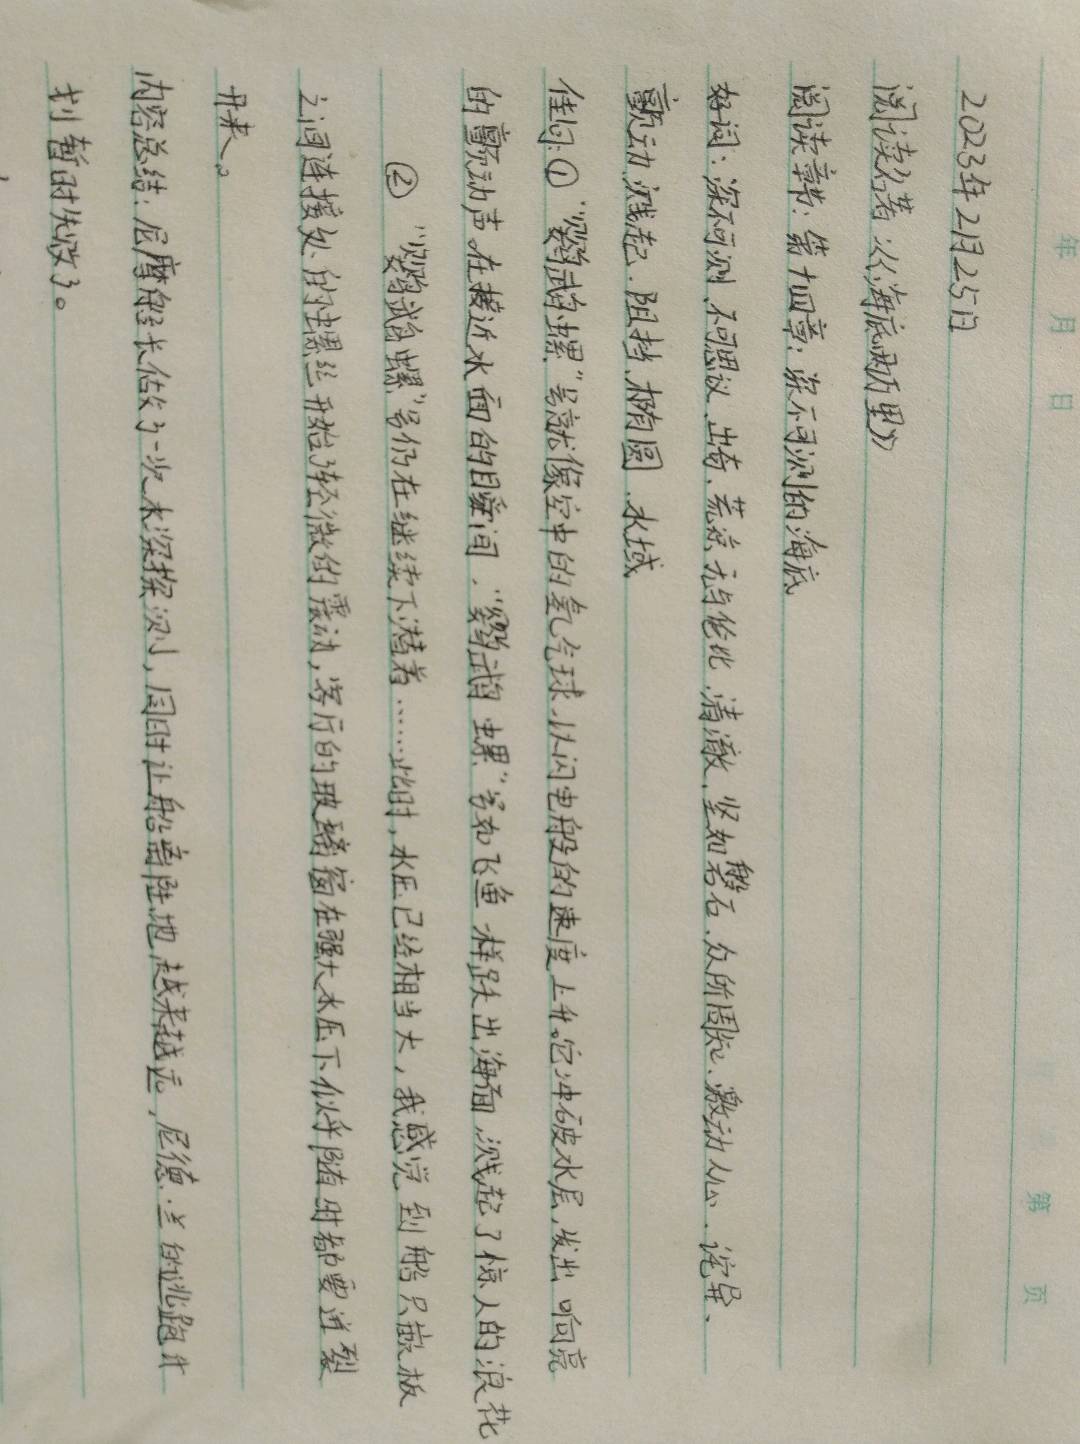 年 月 日
第 页
2023年2月25日
阅读名著:《海底两万里》
阅读章节:第十四章:深不可测的海底
好词:深不可测、不可思议、出奇、荒凉、无与伦比、清澈、坚如磐石、众所周知、激动人心、诧异、
颤动、溅起、阻挡、椭圆、水域
佳句:①“鹦鹉螺”号就像空中的氢气球,以闪电般的速度上升。它冲破水层,发出响亮
的颤动声。在接近水面的瞬间,“鹦鹉螺”号和飞鱼一样跃出海面,溅起了惊人的浪花
②“鹦鹉螺”号仍在继续下潜着……此时,水压已经相当大,我感觉到船只嵌板
之间连接处的螺丝开始了轻微的震动,客厅的玻璃窗在强大水压下似乎随时都要迸裂
开来。
内容总结:尼摩船长做了一次水深探测,同时让船离陆地越来越远,尼德·兰的逃跑计
划暂时失败了。